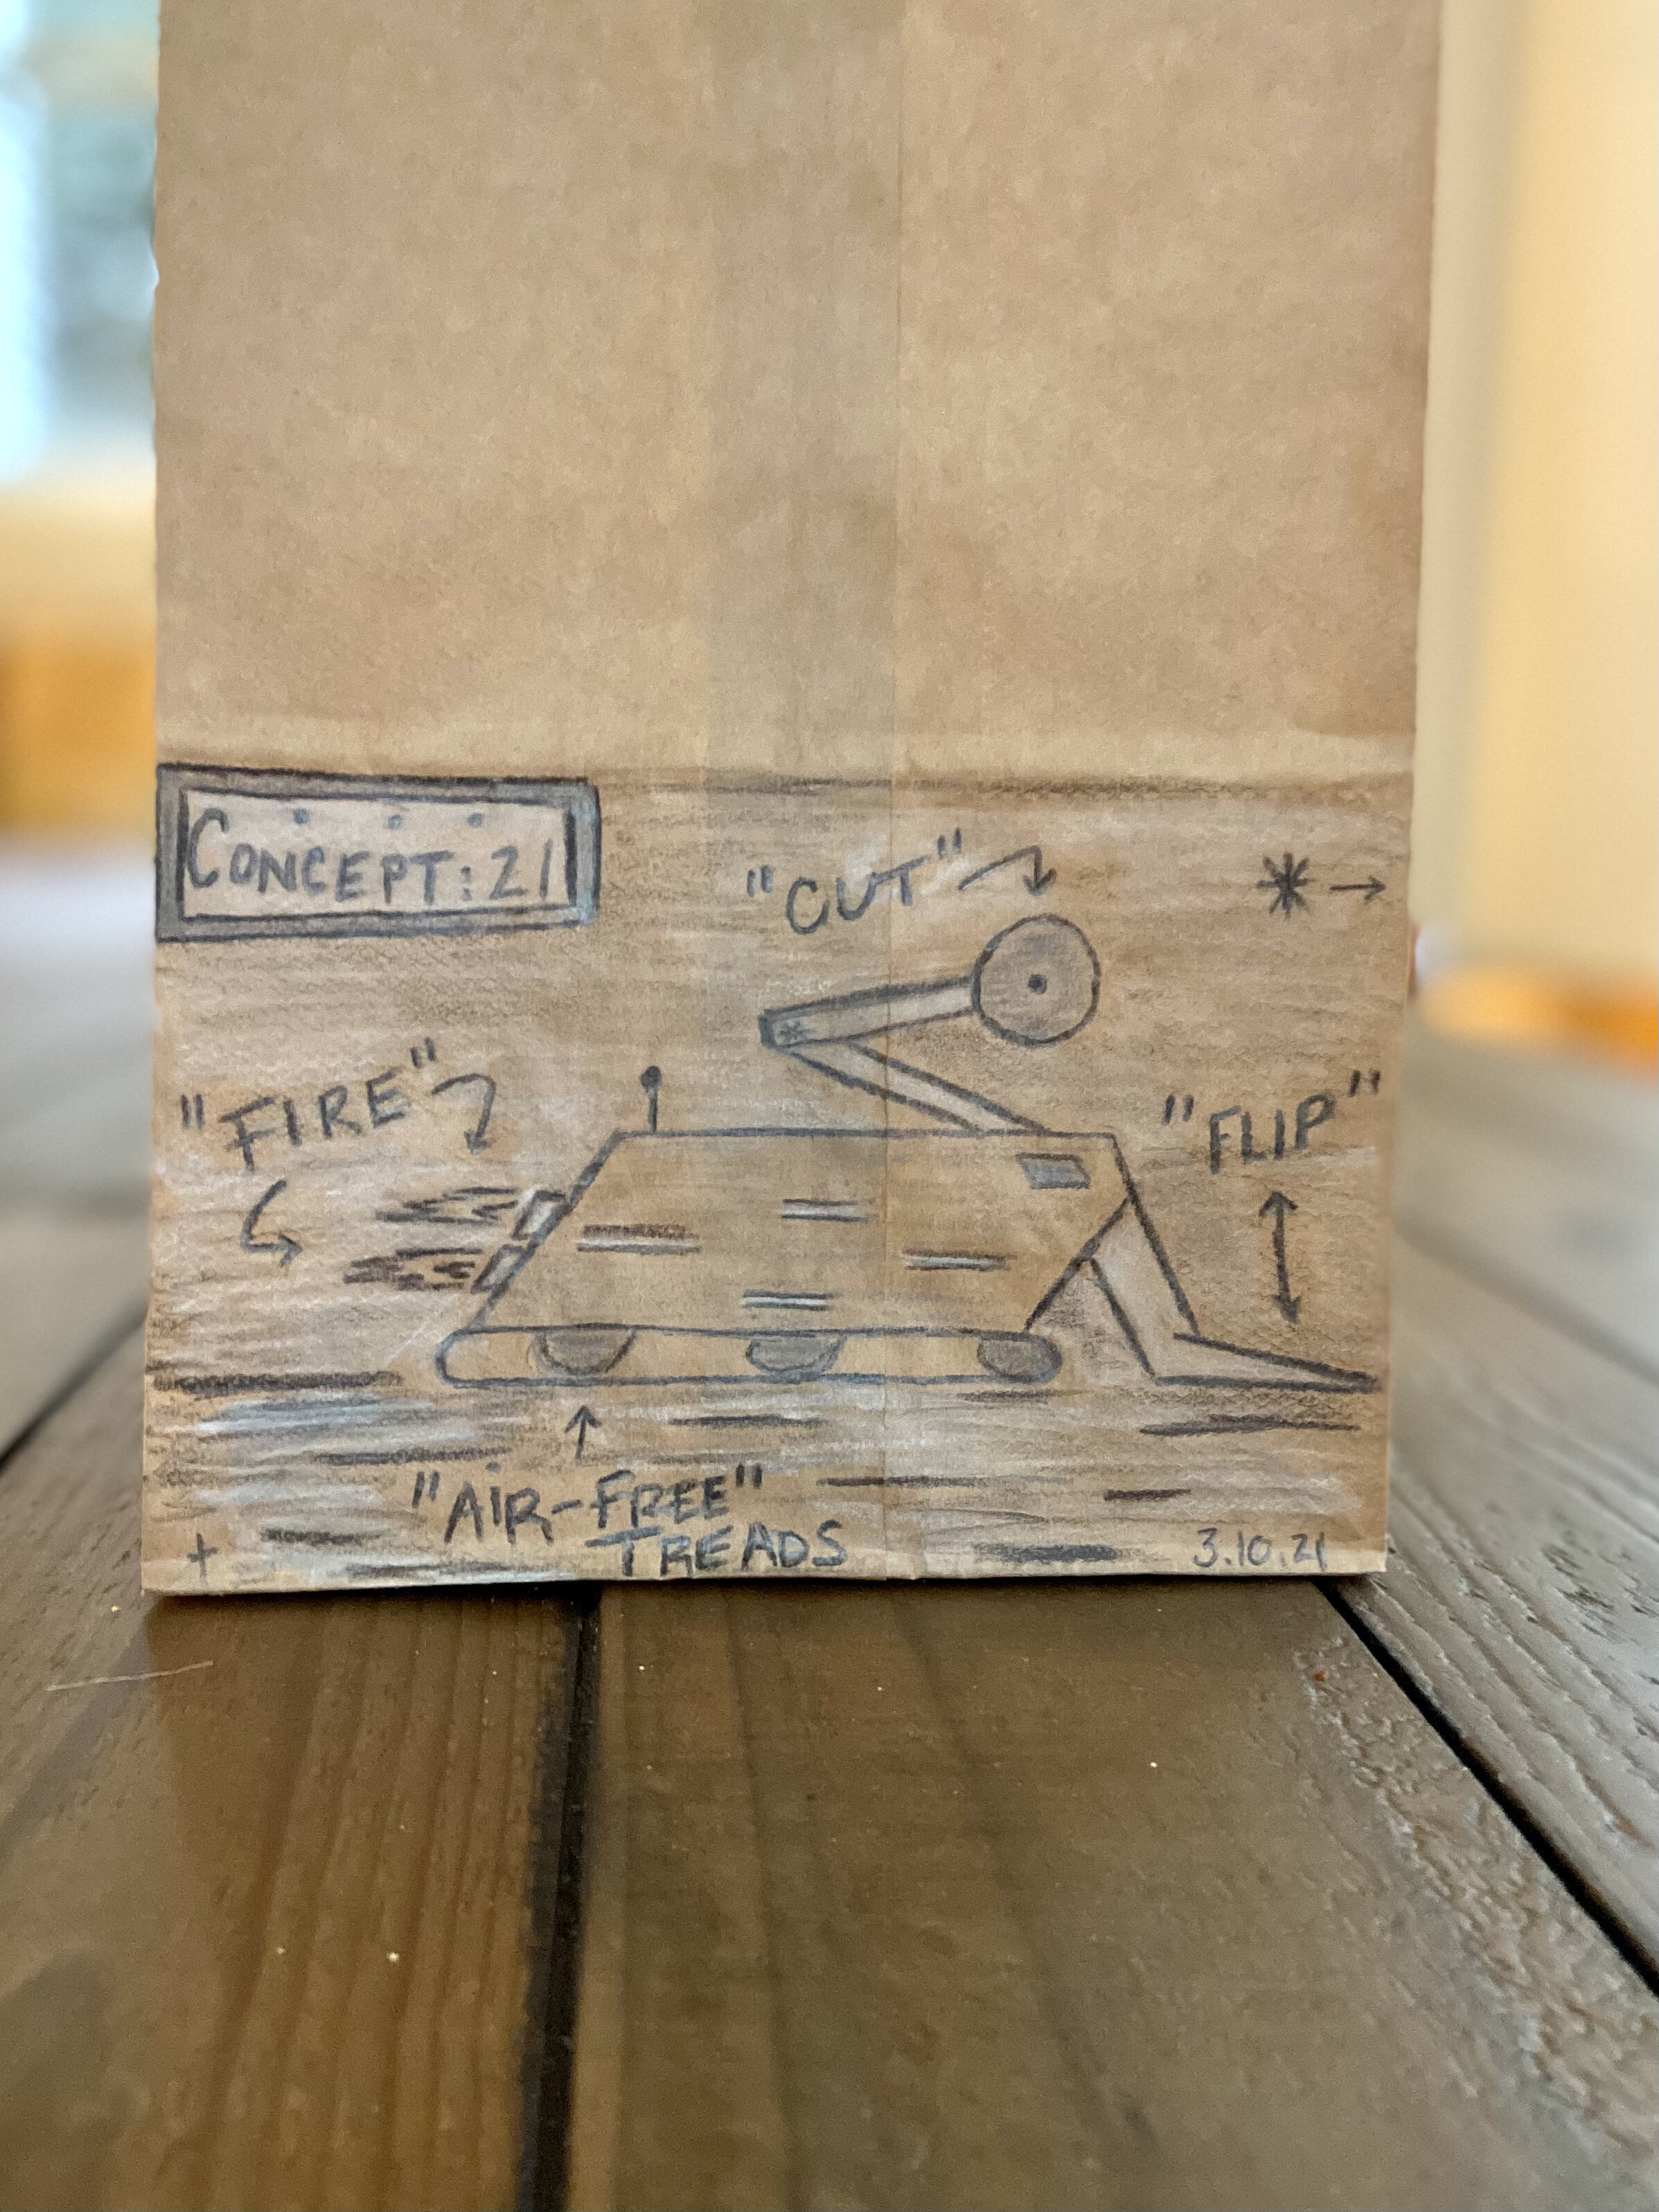 CONCEPT: 21
"CUT"
"FIRE"
"FLIP"
"AIR-FREE"
TREADS
3.10.21